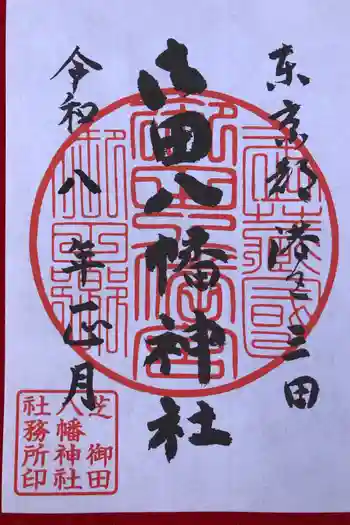 東京都港区三田
御田八幡神社
令和八年正月
芝御田
八幡神社
社務所印